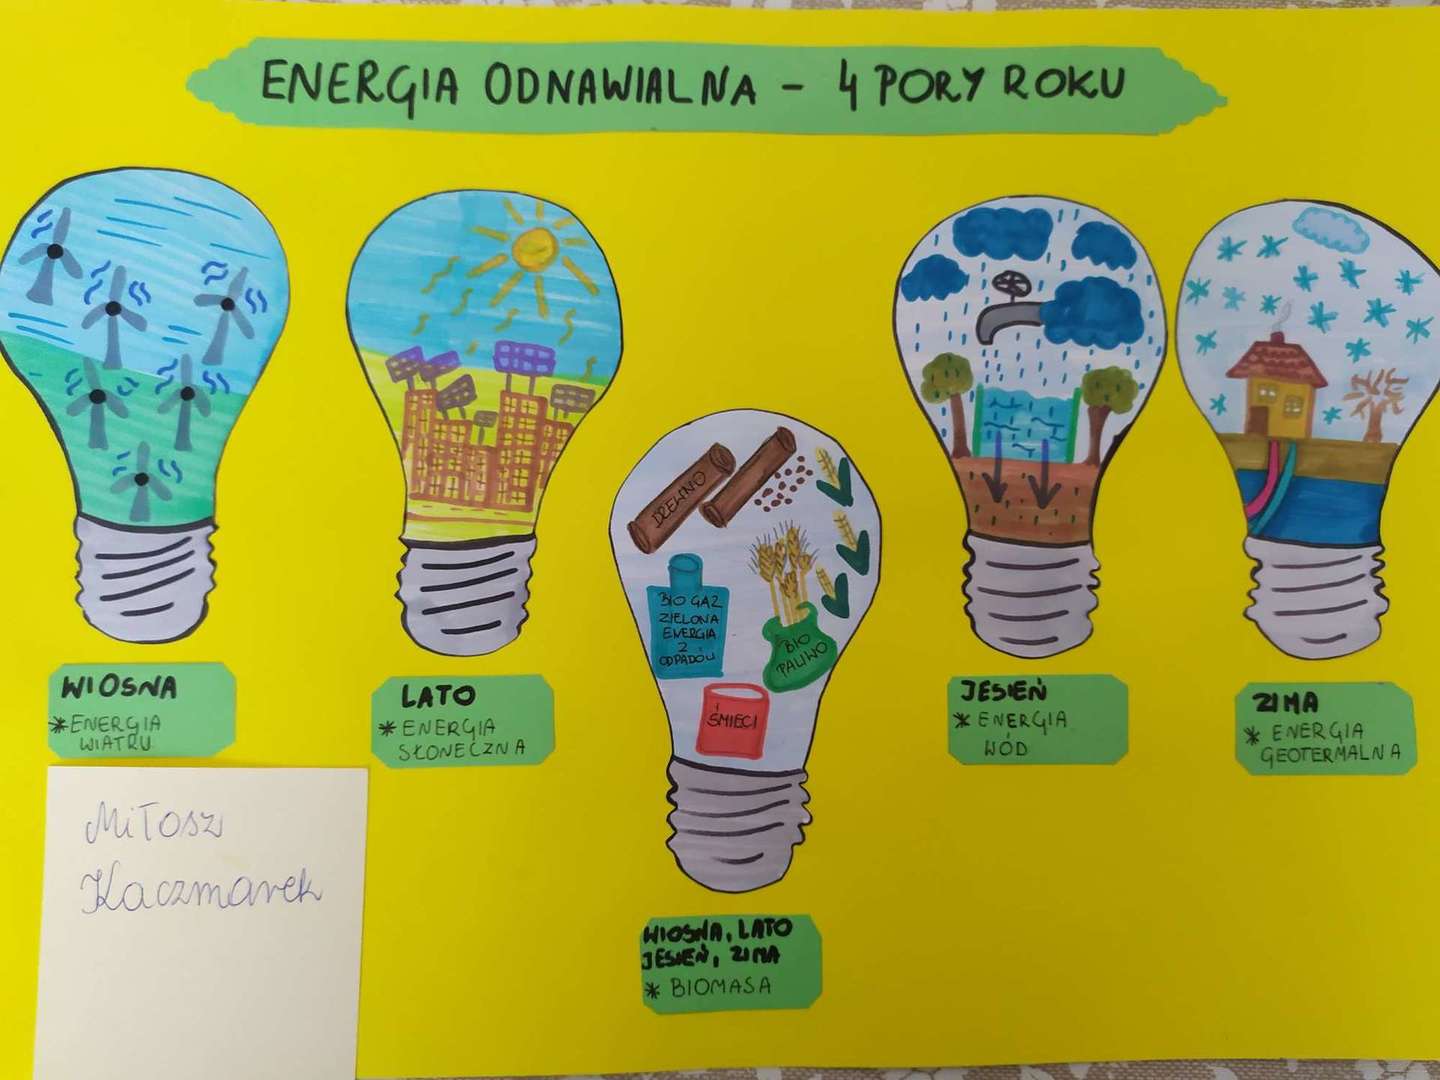 ENERGIA ODNAWIALNA - 4 PORY ROKU
DREWNO
BIO GAZ
ZIELONA
ENERGIA
Z
ODPADÓW
BIO
PALIWO
ŚMIECI
WIOSNA
* ENERGIA
WIATRU
LATO
* ENERGIA
SŁONECZNA
JESIEŃ
* ENERGIA
WÓD
ZIMA
* ENERGIA
GEOTERMALNA
WIOSNA, LATO
JESIEŃ, ZIMA
* BIOMASA
Miłosz
Kaczmarek